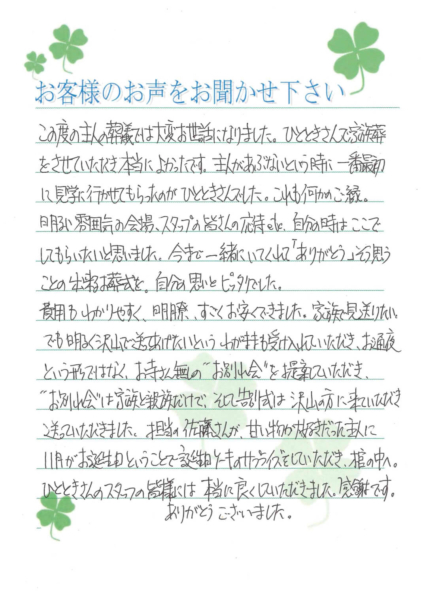 お客様のお声をお聞かせ下さい
この度の主人の葬儀では大変お世話になりました。ひとときさんで家族葬
をさせていただき本当によかったです。主人があぶないという時に一番最初
に見学に行かせてもらったのがひとときさんでした。これも何かのご縁。
明るい雰囲気の会場、スタッフの皆さんの応待に、自分の時はここで
してもらいたいと思いました。今まで一緒にいてくれて「ありがとう」そう思う
ことの出来るお葬式を。自分の思いとピッタリでした。
費用もわかりやすく、明瞭、すごくお安くできました。家族で見送りたい
でも明るく沢山で送てあげたいというわがままも受け入れていただき、お通夜
という形ではなく、お寺さん無の“お別れ会”を提案していただき、
“お別れ会”は家族と親族だけで、そして告別式は沢山の方に来ていただき
送っていただきました。担当の佐藤さんが、甘い物が大好きだった主人に
11月がお誕生日ということで誕生日ケーキのサプライズをしていただき、棺の中へ。
ひとときさんのスタッフの皆様には本当に良くしていただきました。感謝です。
ありがとうございました。